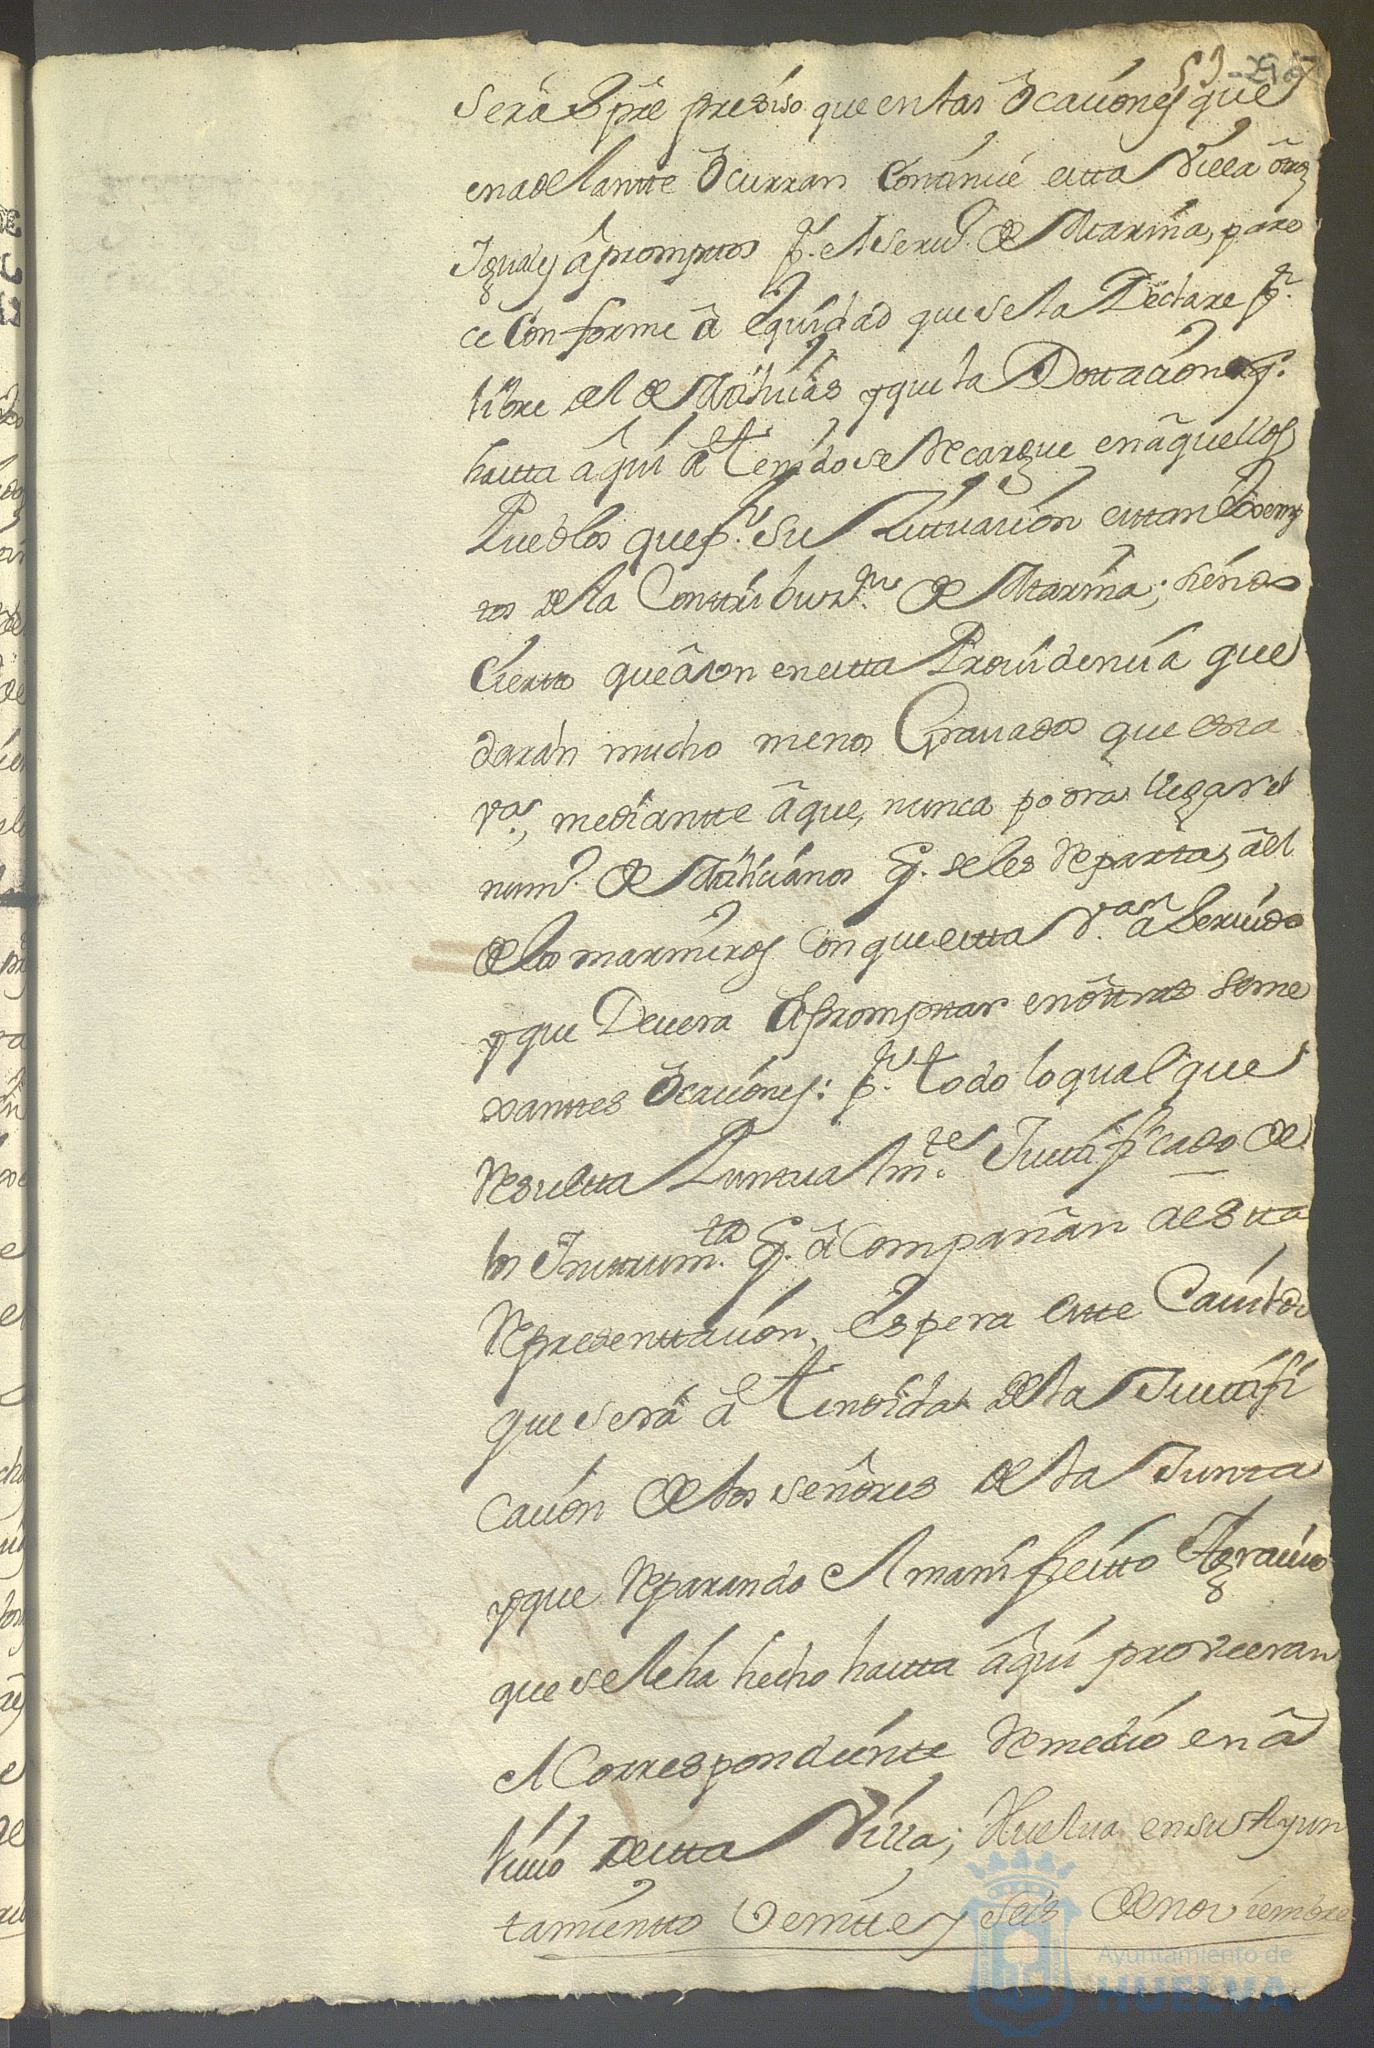 53
será Spre preziso que en las Ocaciones que
en adelantte Ocurran Continúe estta Villa otros
Yguales âpromptos pa. el Serv.º de Marina, pare
ce Conforme â equidad que se la Declare pr.
libre del de Milicias y que la Dottacion q.
hastta âqui â tenido se Recargue en âquellos
Pueblos que pr. su Sittuacion esttan Esemp
tos de la Conttribuz.on de Marina; siendo
Ciertto que âun en estta Providencia que
darán mucho menos Gravados que esta
va, mediantte âque, nunca podra llegar el
num.º de Milicianos q. se les Reparta, âel
de los marineros Con que estta V.a â Servido
y que Devera Apromptar en ôttras seme
xanttes Ocaciones: pr. todo lo qual que
Resultta Puntualm.te Justificado de
los Insttrum.tos q. â Compañan â estta
Representtacion, Espera estte Cavildo
que será âtendida de la Justtifi
cacion de los señores de la Junta
y que Reparando el manifiestto Agravio
que se le ha hecho hastta âqui proveeran
el Correspondientte Remedio en â
livio de estta Villa; Huelva en su Ayun
tamientto Veintte y seis de noviembre
Ayuntamiento de
HUELVA